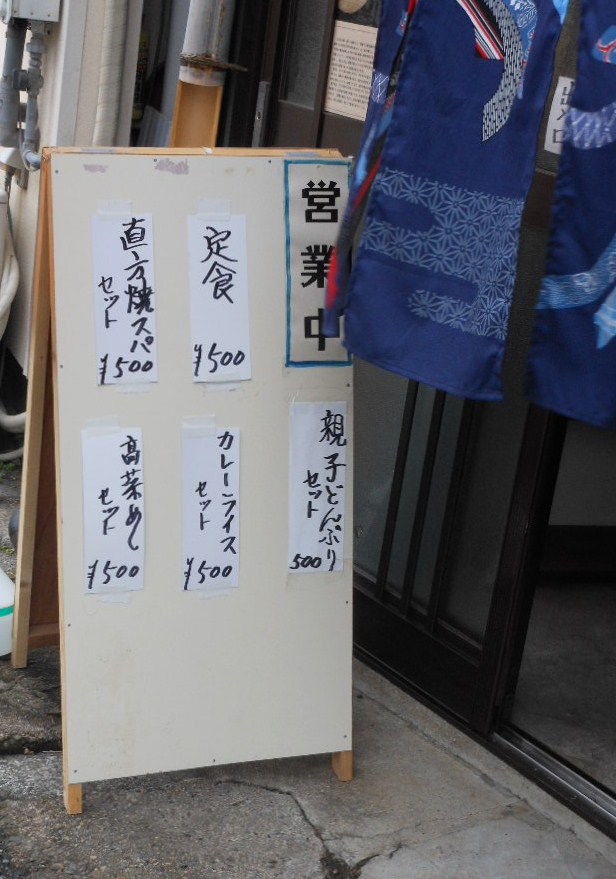 営業中
定食
¥500
直方焼スパ
セット
¥500
親子どんぶり
セット
500
カレーライス
セット
¥500
高菜めし
セット
¥500